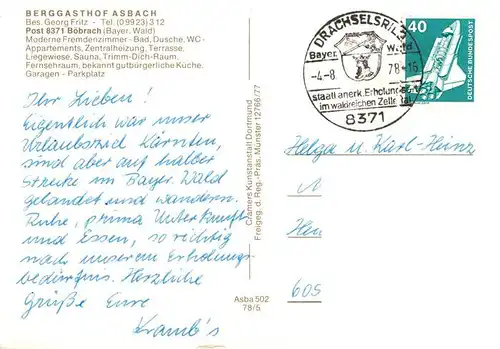 BERGGASTHOF ASBACH
Bes. Georg Fritz - Tel. (09923) 312
Post 8371 Böbrach (Bayer. Wald)
Moderne Fremdenzimmer - Bad, Dusche, WC -
Appartements, Zentralheizung, Terrasse,
Liegewiese, Sauna, Trimm-Dich-Raum,
Fernsehraum, bekannt gutbürgerliche Küche,
Garagen - Parkplatz
Ihr Lieben!
Eigentlich war unser
Urlaubsziel Kärnten,
sind aber auf halber
Strecke im Bayer. Wald
gelandet und wandern.
Ruhe, prima Unterkunft
und Essen, so richtig
nach unserem Erholungs-
bedürfnis. Herzliche
Grüße Eure
Kramb's
Cramers Kunstanstalt Dortmund
Freigeg. d. Reg.-Präs. Münster 12766/77
Asba 502
78/5
DRACHSELSRIED
Bayer. Wald
-4-8 78-16
staatl anerk. Erholungsort
im waldreichen Zellertal
8371
40
DEUTSCHE BUNDESPOST
Helga u. Karl-Heinz
605